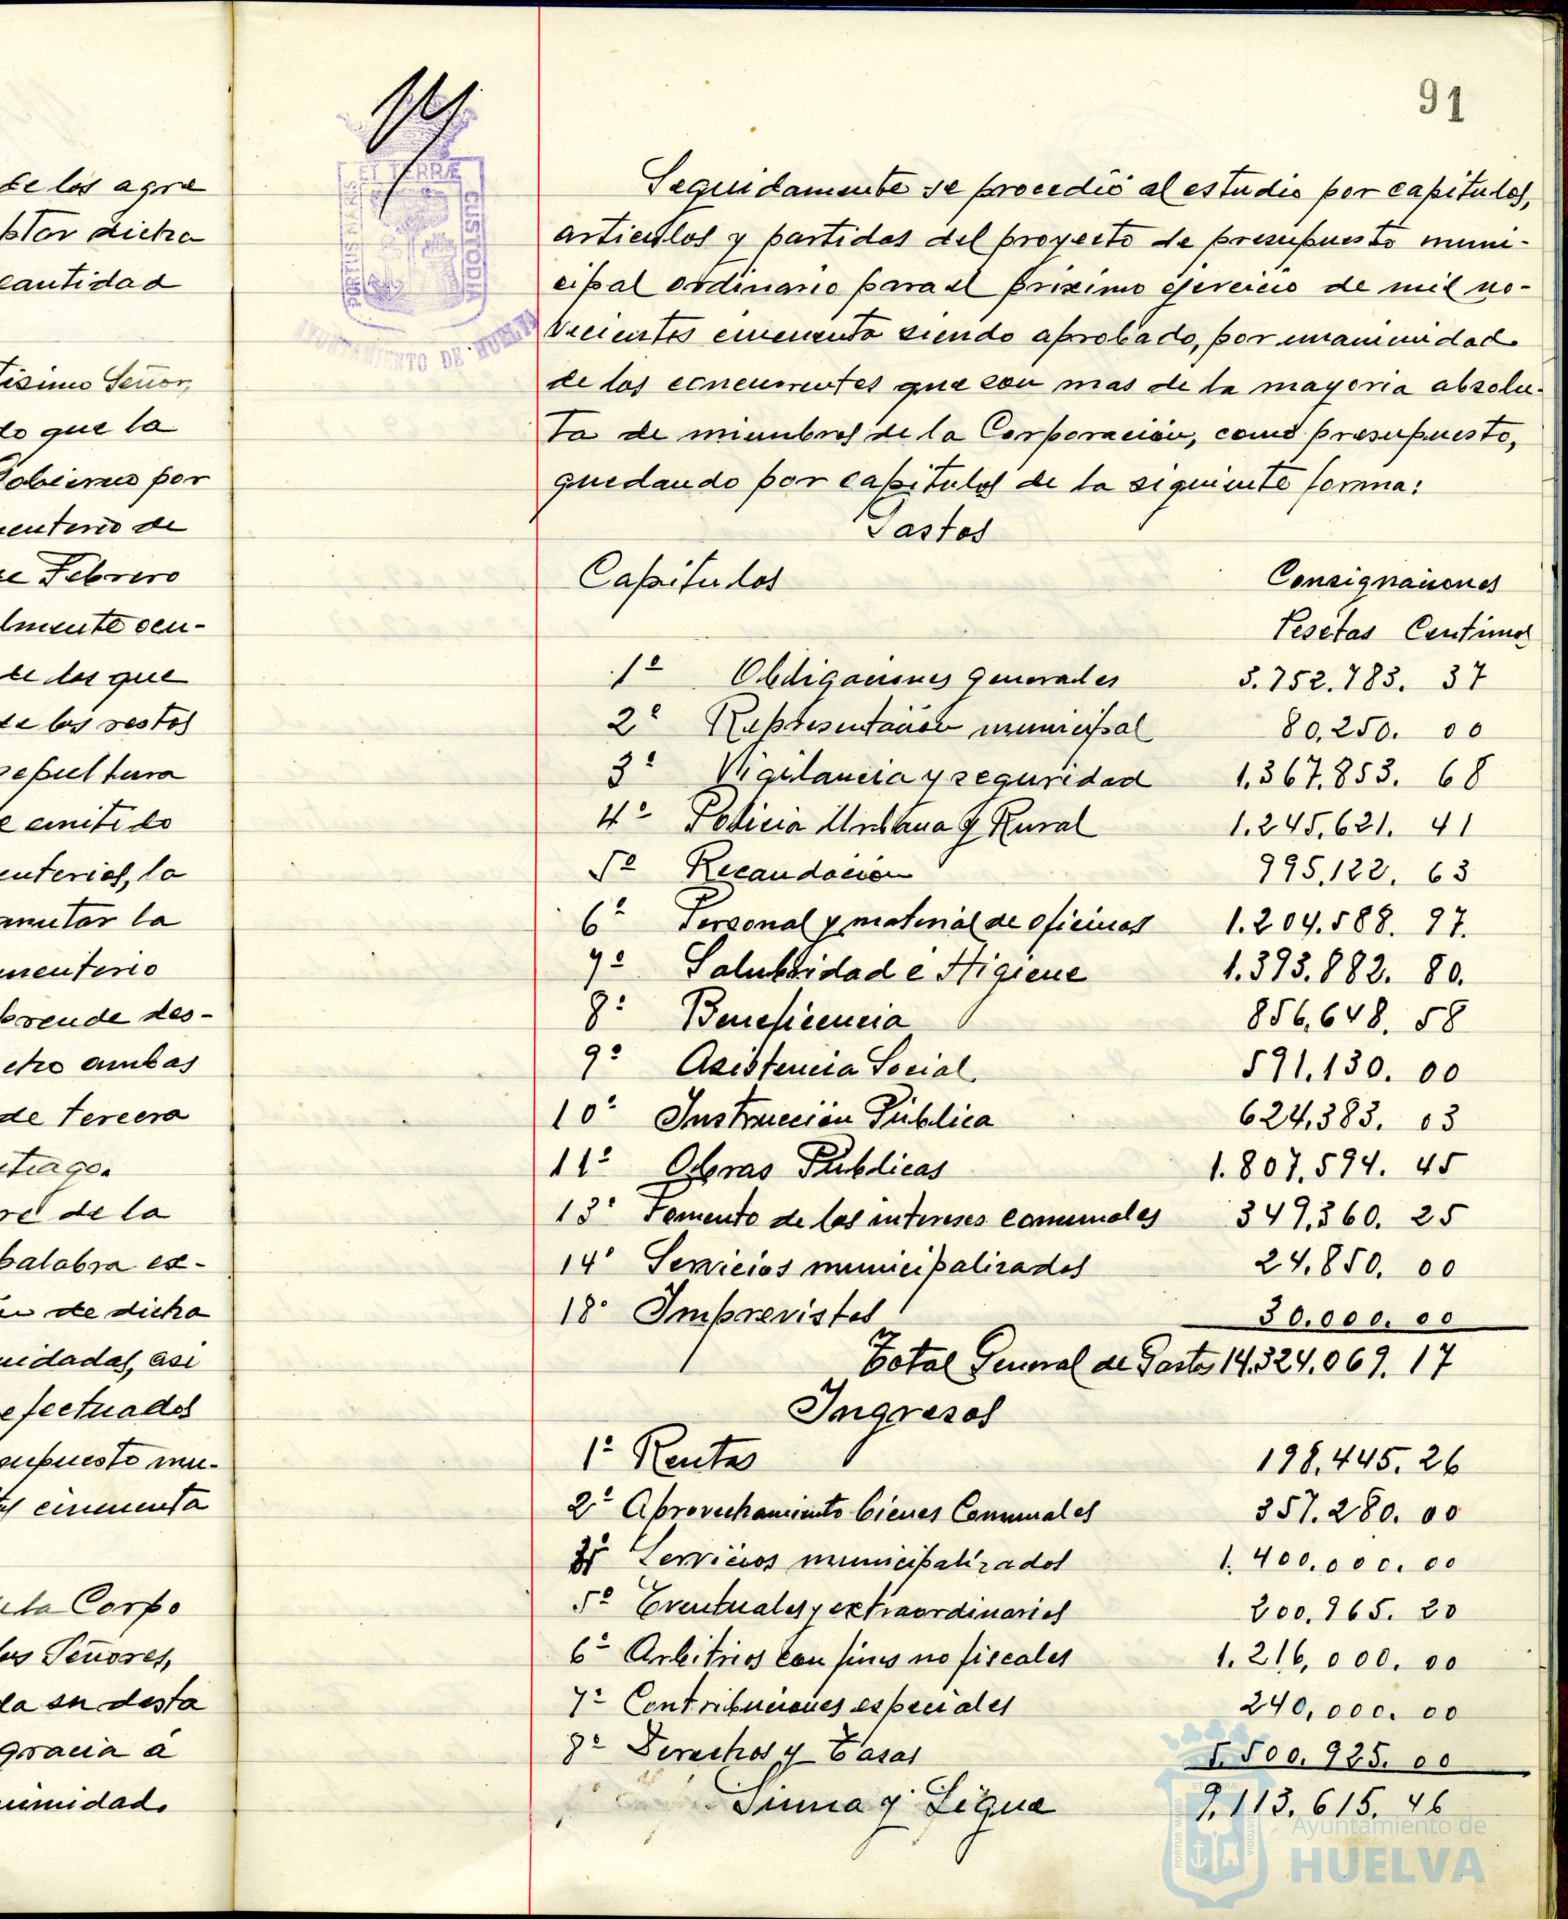 de los agre
ptar dicha
cantidad
tisimo Señor,
lo que la
Gobierno por
menterio de
de Febrero
lmente ocu-
de los que
de los restos
sepultura
e emitido
enterios, la
nmutar la
menterio
prende des-
cho ambas
de tercera
tiago.
re de la
palabra ex-
en de dicha
uidadas, asi
efectuados
supuesto mu-
tos cincuenta
la Corpo
los Señores,
da su desta
gracia á
nimidad.
14
PORTUS MARIS ET TERRÆ CUSTODIA
AYUNTAMIENTO DE HUELVA
91
Seguidamente se procedió al estudio por capitulos,
articulos y partidas del proyecto de presupuesto muni-
cipal ordinario para el próximo ejercicio de mil no-
vecientos cincuenta siendo aprobado, por unanimidad
de los concurrentes que son mas de la mayoria absolu-
ta de miembros de la Corporación, como presupuesto,
quedando por capitulos de la siguiente forma:
Gastos
Capitulos Consignaciones
Pesetas Centimos
1º Obligaciones generales 3.752.783. 37
2º Representación municipal 80.250. 00
3º Vigilancia y seguridad 1.367.853. 68
4º Policia Urbana y Rural 1.245.621. 41
5º Recaudación 995.122. 63
6º Personal y material de oficinas 1.204.588. 97.
7º Salubridad é Higiene 1.393.882. 80.
8º Beneficencia 856.648. 58
9º Asistencia Social. 591.130. 00
10º Instrucción Pública 624.383. 03
11º Obras Publicas 1.807.594. 45
13º Fomento de los intereses comunales 349.360. 25
14º Servicios municipalizados 24.850. 00
18º Imprevistos 30.000. 00
Total General de Gastos 14.324.069. 17
Ingresos
1º Rentas 198.445. 26
2º Aprovechamiento bienes Comunales 357.280. 00
3º Servicios municipalizados 1.400.000. 00
5º Eventuales y extraordinarios 200.965. 20
6º Arbitrios con fines no fiscales 1.216.000. 00
7º Contribuciones especiales 240.000. 00
8º Derechos y Tasas 5.500.925. 00
Suma y Sigue 9.113.615. 46
Ayuntamiento de
HUELVA